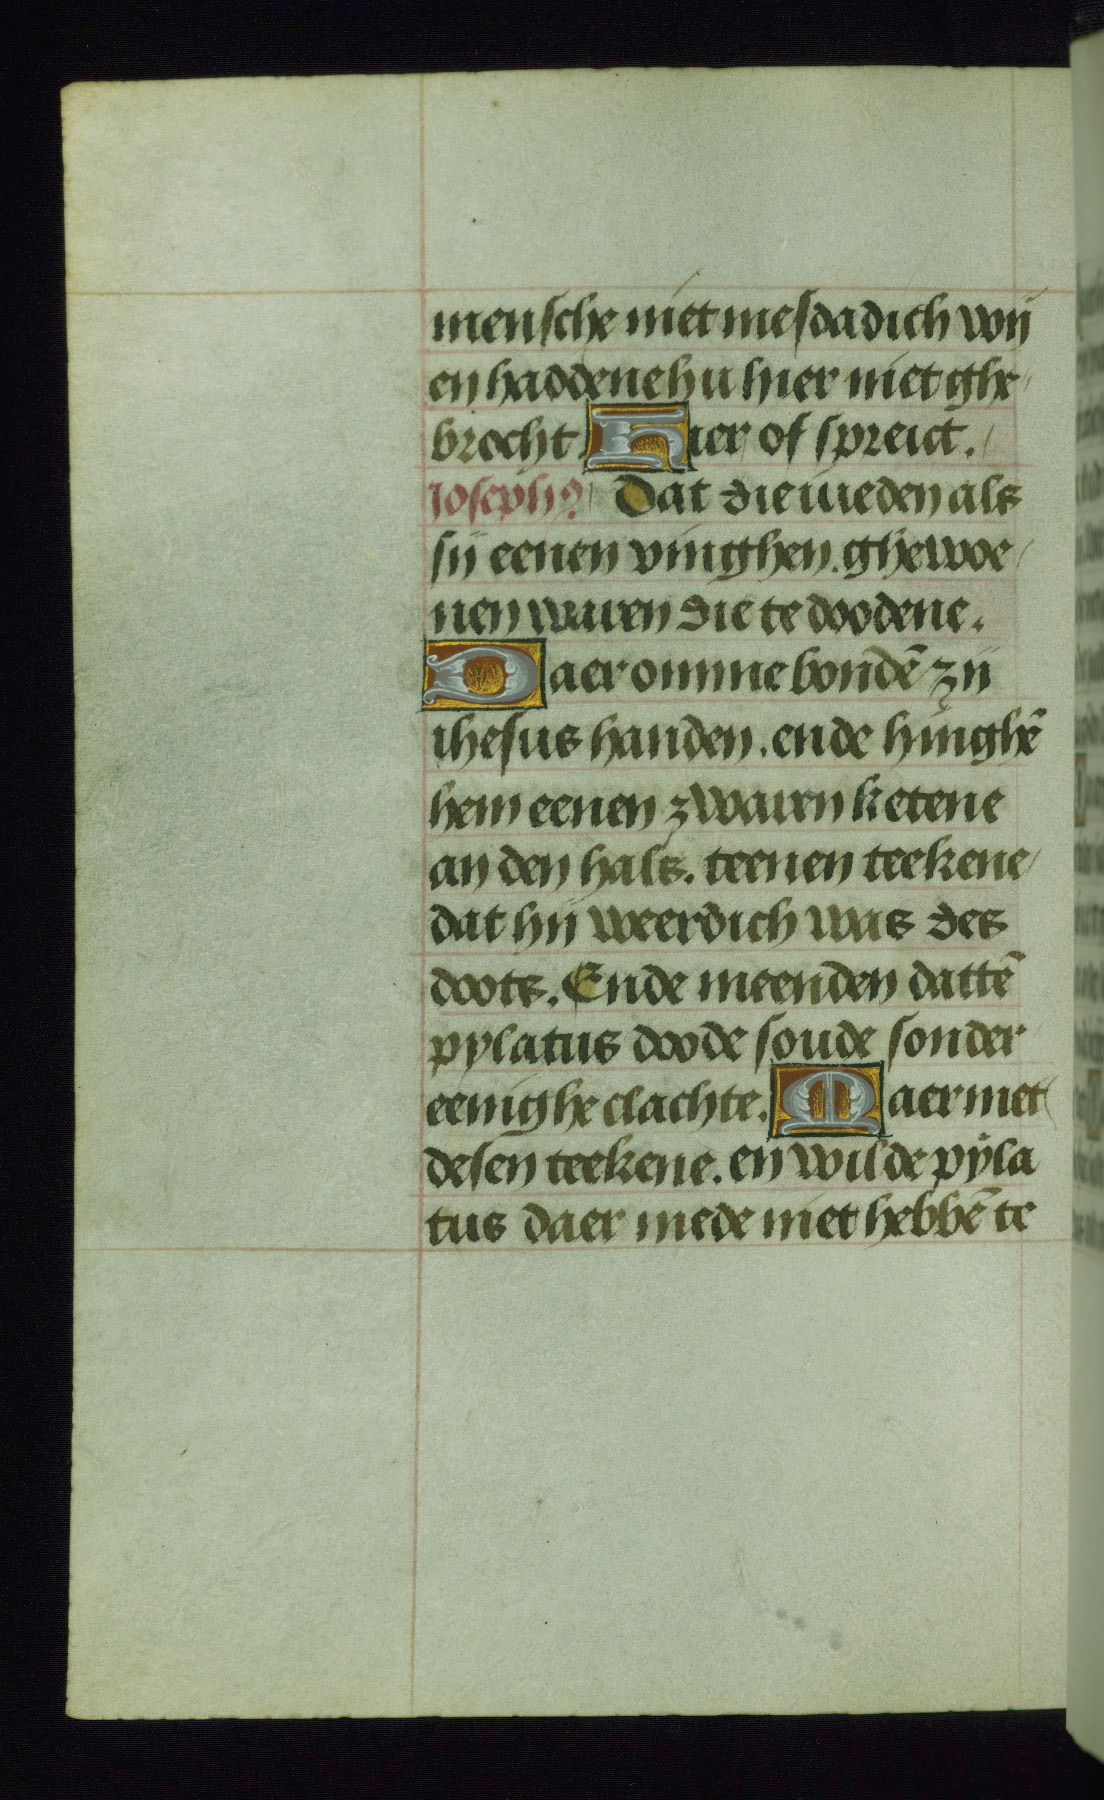 mensche niet mesdadich wij
en haddene hu hier niet ghe
brocht. Hier of spreict.
Joseph9 Dat die iueden als
sij eenen vinghen. ghewoe
nen waren die te doodene.
Daer omme bondē zij
ihesus handen. ende hinghē
hem eenen zwaren ketene
an den hals. teenen teekene
dat hij weerdich was des
doots. Ende meenden dattē
pylatus doode soude sonder
eenighe clachte. Maer met
desen teekene. en wilde pyla
tus daer mede niet hebbē te